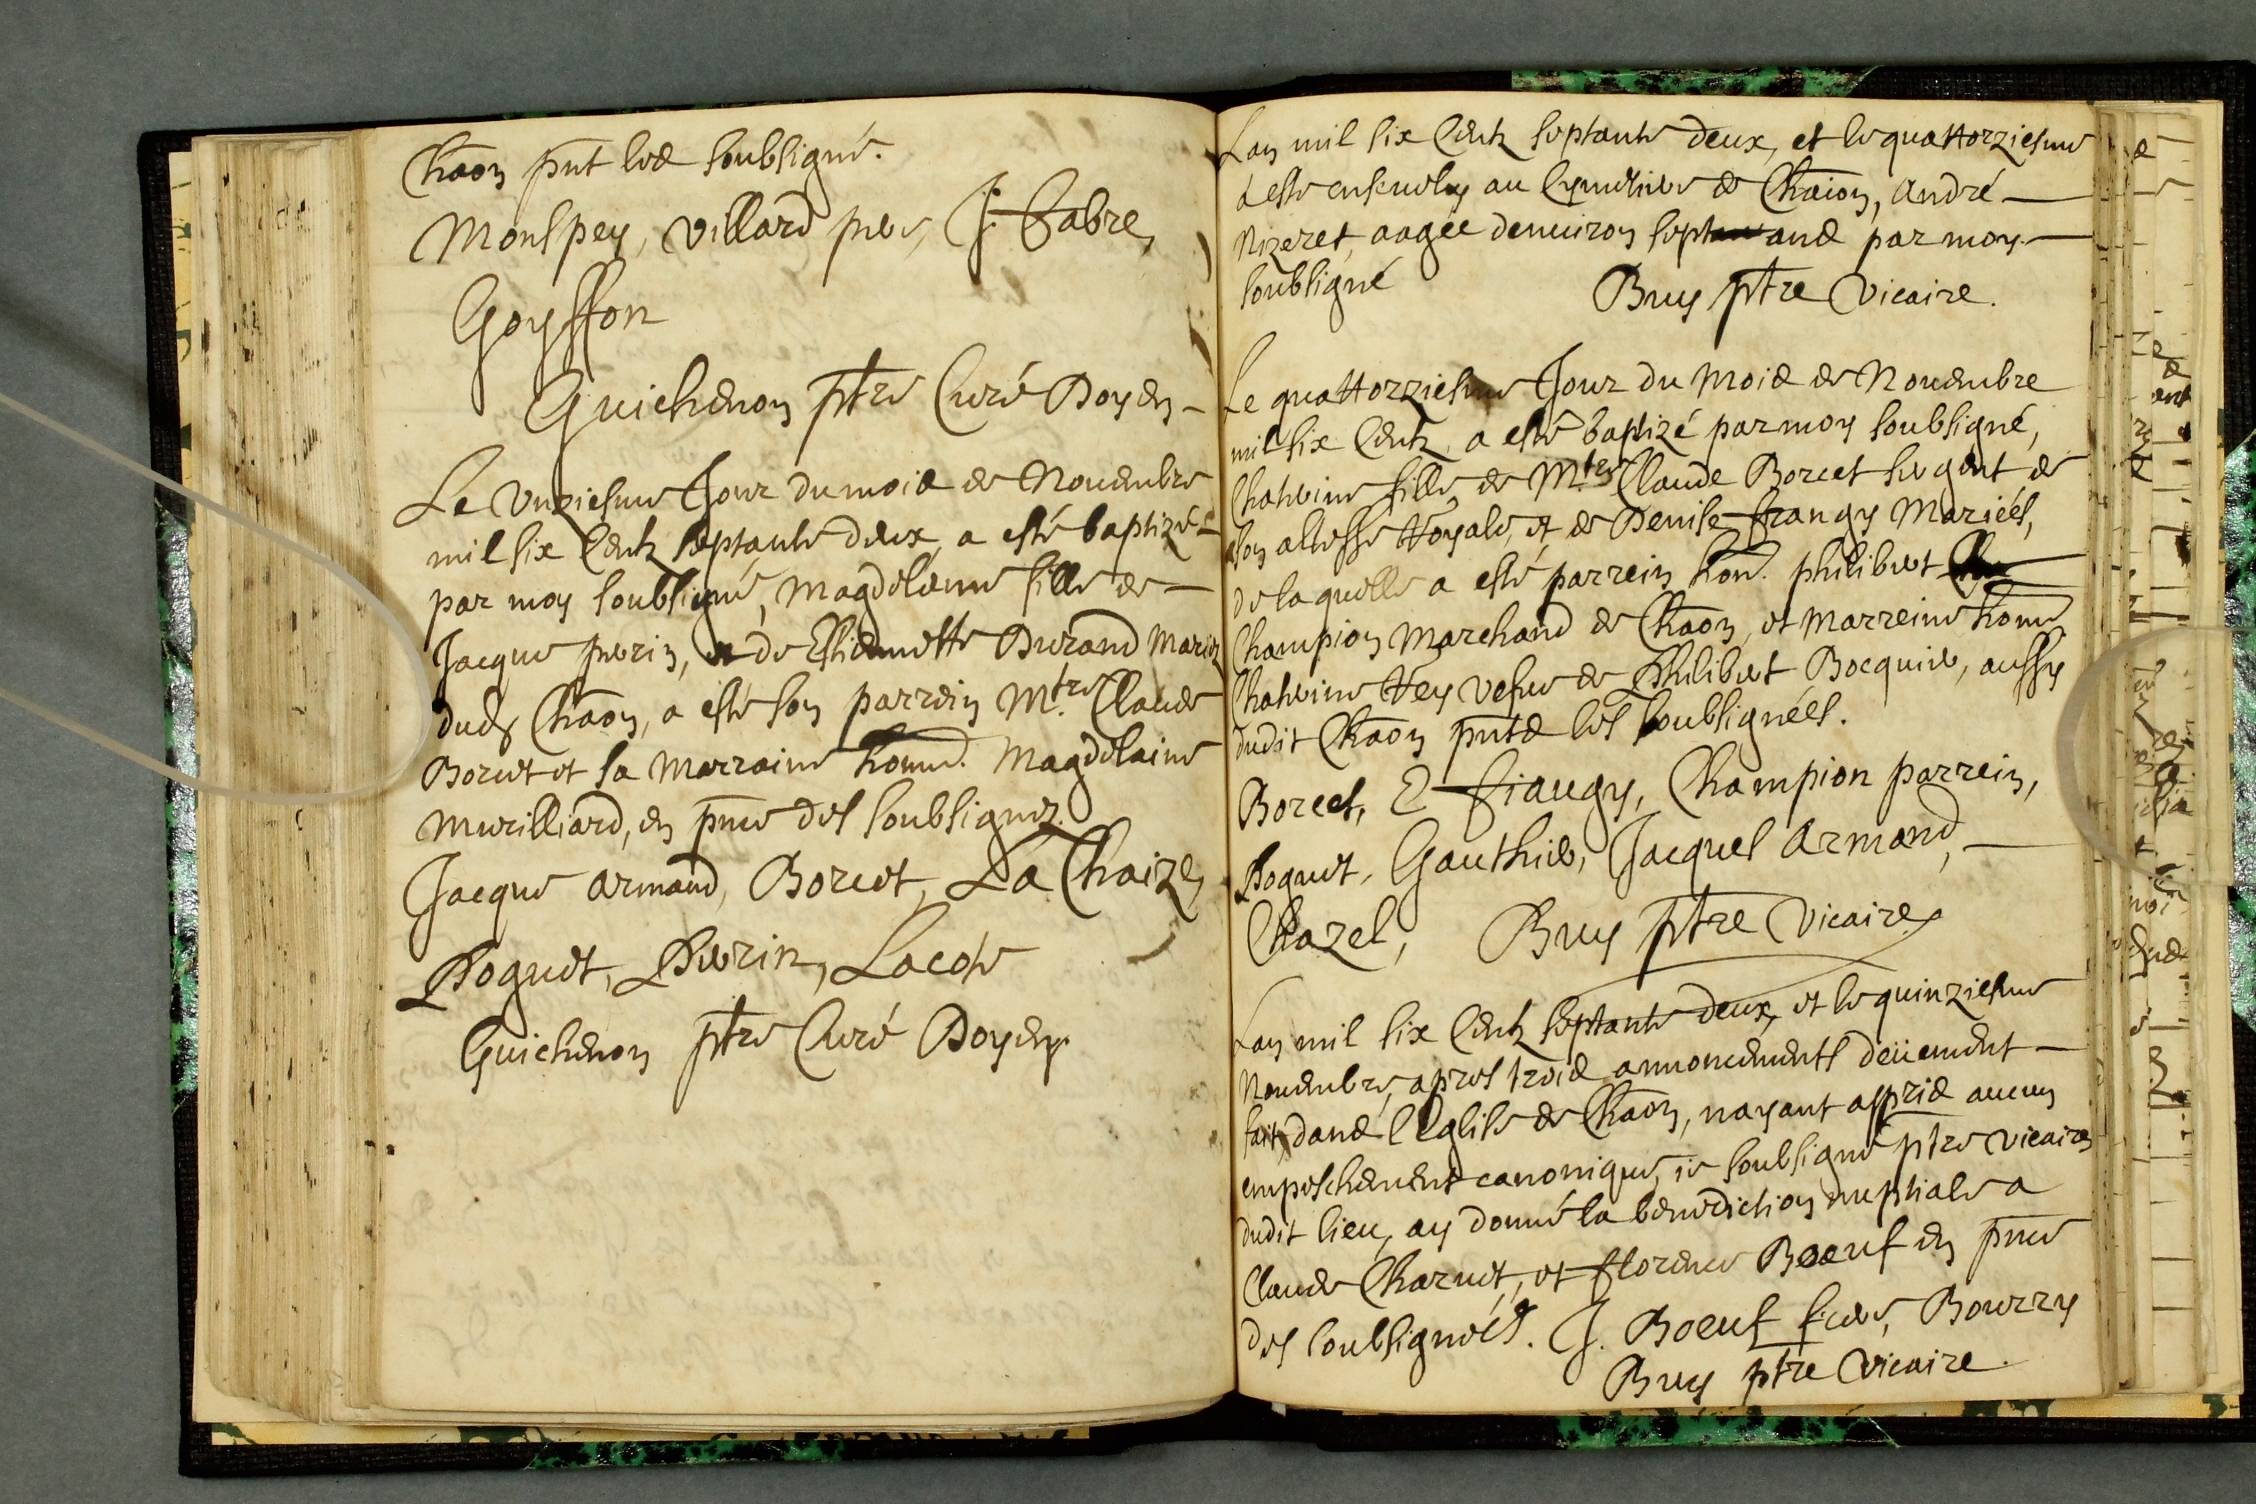 Chãon pñt les soubsigné.
Monspey, Villard pere, J. Fabre,
Goyffon
Guichenon ptre Curé Doyen
Le Unziesme Jour du mois de Nouembre
mil six Centz septante deux, a esté baptizé
par moy soubsigné, Magdelenne fille de
Jacque perin, et de Esthiennette Durand Mariez
dud. Chãon, a esté son parrein Mtre Claude
Borcet et sa Marraine honn. Magdelaine
Murilliard, en pnce des soubsignez.
Jacque Armand, Borcet, La Chaize,
Poguet, Perin, Lacote
Guichenon ptre Curé Doyen
Lan mil six Centz septante deux, et le quattorziesme
a este enseuely au Cymetiere de Chãon, André
Nizeret, aagée denuiron sept ans par moy
soubsigné
Bruy ptre Vicaire.
Le quattorziesme Jour du Mois de Nouembre
mil six Centz a esté baptizé par moy soubsigné,
Chaterine fille de Mtre Claude Borcet sergent de
son altesse Royale, et de Denise frangy Mariés,
de laquelle a esté parrein hon. philibert
Champion Marchand de Chãon, et Marreine honn.
Chaterine Rey vefue de Philibert Bocquier, aussy
dudit Chãon pnts les soubsignées.
Borcet, E fiaugy, Champion parrein,
Poguet, Gauthier, Jacques Armand,
Chazel, Bruy ptre Vicaire
Lan mil six Centz septante deux, et le quinziesme
Nouembre, apres trois annoncements deüement
fait dans l'Eglise de Chãon, nayant appris aucun
empeschement canonique, ie soubsigné ptre vicaire
dudit lieu, ay donné la benediction nuptiale a
Claude Charnet, et florence Boeuf en pnce
des soubsignées. J. Boeuf frere, Bourry
Bruy ptre Vicaire.